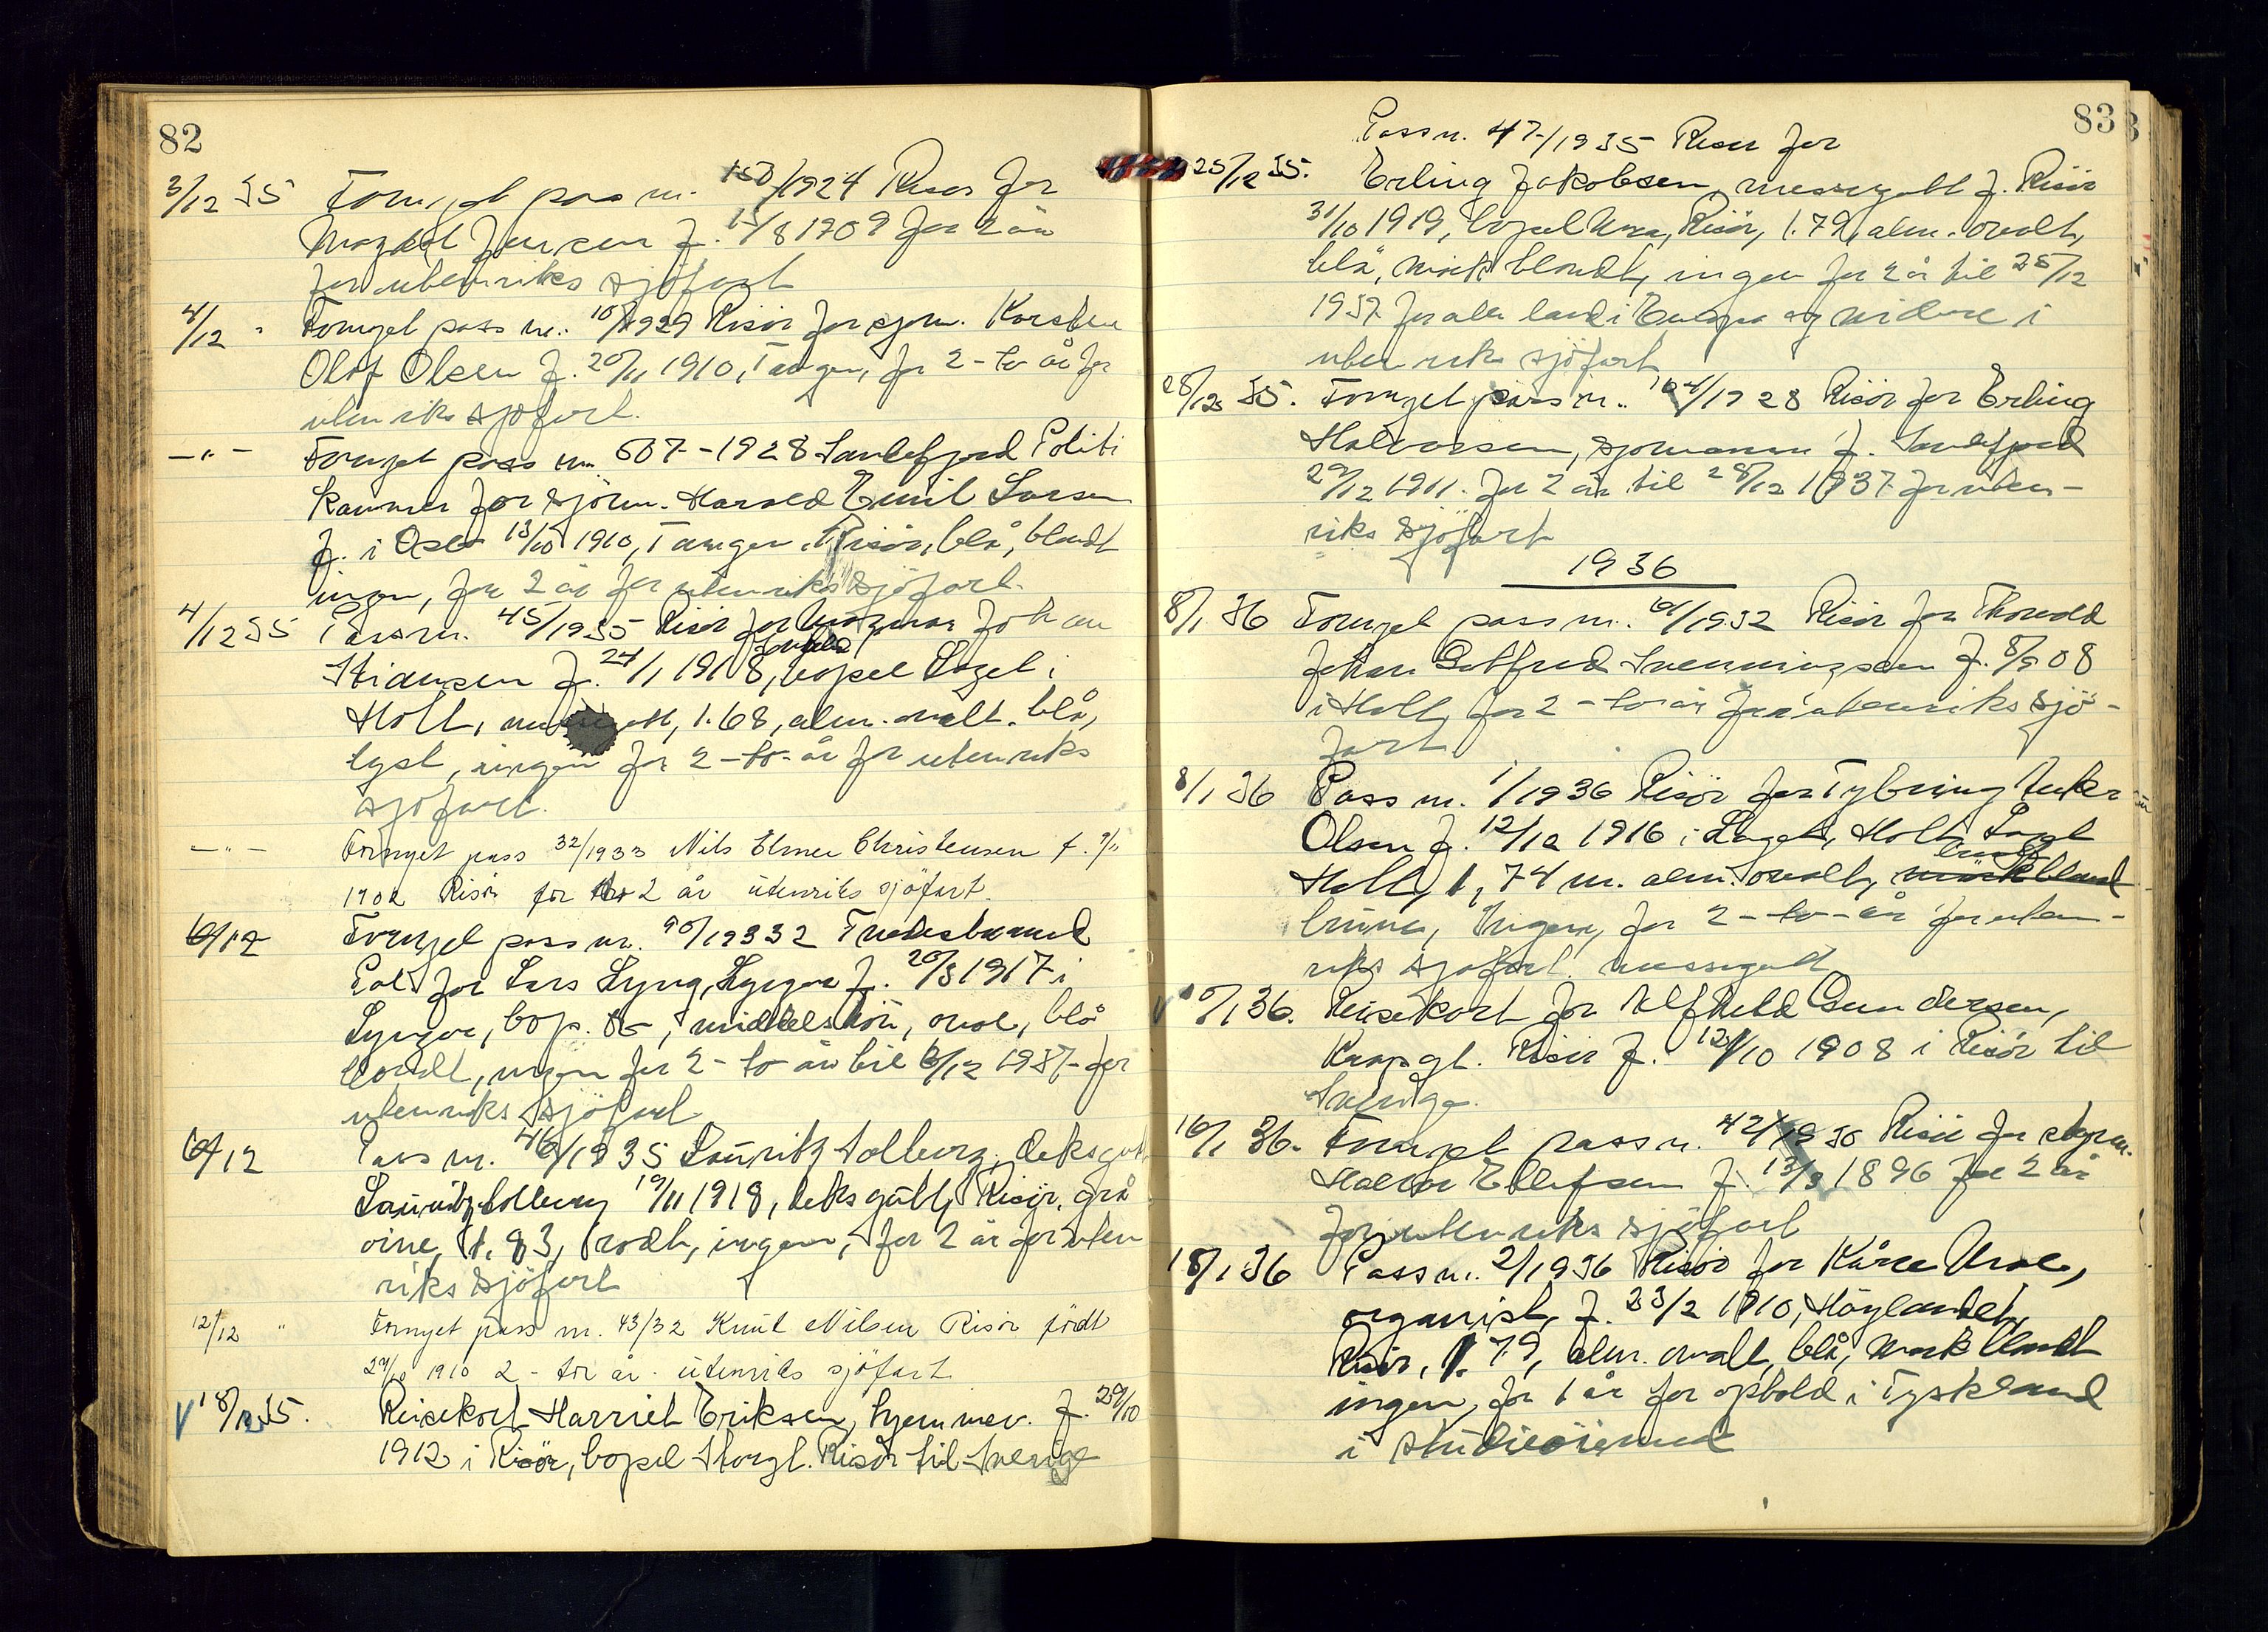 82
3/12 35 Fornyet pass nr. 150/1924 Risør for
Jensen f. 15/8 1909 for 2 år
for utenriks sjöfart
4/12 " Fornyet pass nr. 10/1929 Risör for sjøm. Karsten
Olaf Olsen f. 20/11 1910, Tangen, for 2 - to år for
utenriks sjøfart.
- " - Fornyet pass nr. 507 - 1928 Sandefjord Politi
kammer for sjöm. Harald Emil Larsen
f. i Oslo 13/10 1910, Tangen, Risör, blå, blondt
ingen, for 2 år for utenriks sjöfart.
4/12 35 Passnr. 45/1935 Risör for Johan
Stiansen f. 24/1 1918, bopel Laget i
Holt, 1.68, alm. ovalt. blå,
lyst, ingen for 2 - to - år for utenriks
sjöfart.
- " - Fornyet pass 32/1933 Nils Elmer Christensen f. 9/11
1902 Risör for 2 år utenriks sjöfart.
6/12 Fornyet pass nr. 90/19332 Tvedestrand
Pol. for Lars Lyng, Lyngør f. 20/3 1917 i
Lyngør, bop. , middelshöi, oval, blå
blondt, ingen for 2 - to år til 6/12 1937 - for
utenriks sjöfart
6/12 Pass nr. 46/1935 Lauritz Solberg, deksgut
Lauritz Solberg 19/11 1918, deksgutt, Risör, grå
öine, 1.83, rodt, ingen, for 2 år for uten
riks sjöfart
12/12 " Fornyet pass nr. 43/32 Knut Nilsen Risör födt
29/10 1910 2 - to år - utenriks sjöfart
V 18/12 35. Reisekort Harriet Eriksen, hjemmev. f. 29/10
1912 i Risör, bopel Storgt. Risör til Sverige
83
Passnr. 47/1935 Risør for
25/12 35. Erling Jakobsen, messegutt f. Risör
31/10 1919, bopel Risör, 1.79, alm. ovalt,
blå, mörk blondt, ingen for 2 år til 25/12
1937 for alle land i Europa og videre i
utenriks sjöfart
28/12 35. Fornyet pass nr. 104/1928 Risör for Erling
Halvorsen, sjømann f. Sandefjord
29/12 1911. for 2 år til 28/12 1937 for uten-
riks sjöfart
1936
8/1 36 Fornyet pass nr. 61/1932 Risör for Thorvald
Johan Gotfred Svenningsen f. 8/5 08
i Holt, for 2 - to år for utenriks sjö-
fart
8/1 36 Pass nr. 1/1936 Risör for Tybring
Olsen f. 12/10 1916 i Laget, Holt, Laget
Holt, 1,74 m. alm. ovalt, mörkblond
brune, Ingen, for 2 - to - år for uten-
riks sjøfart. messegutt
V 10/1 36. Reisekort for Alfhild Gundersen,
Kragsgt. Risör f. 12/10 1908 i Risör til
Sverige.
16/1 36. Fornyet passnr. 42/1930 Risör for styrm.
Halvor Ellefsen f. 13/3 1896 for 2 år
for utenriks sjöfart
18/1 36 Passnr. 2/1936 Risör for Kåre
organist, f. 23/2 1910, Höylandet,
Risör, 1.79, alm. ovalt, blå, mörk blondt
ingen, for 1 år for ophold i Tyskland
i studieöiemed